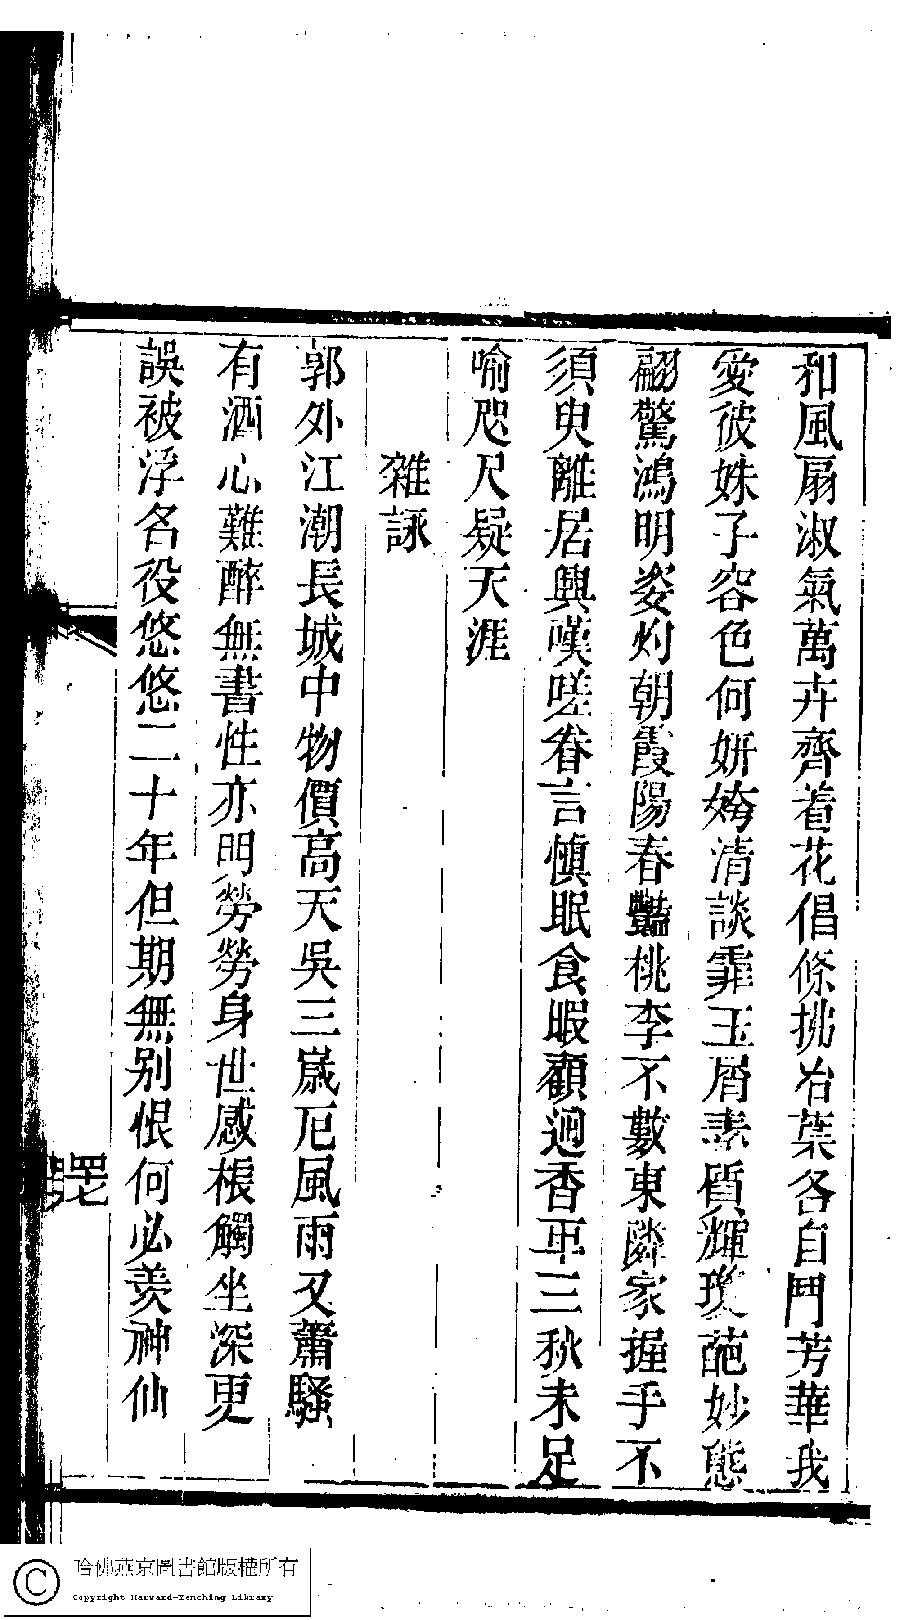 和風扇淑氣萬卉齊着花倡條拂冶葉各自鬥芳華我
愛彼姝子容色何妍姱清談霏玉屑素質輝瓊葩妙態
翩驚鴻明姿灼朝霞陽春艷桃李不數東隣家握手不
須臾離居興嘆嗟眷言慎眠食暇顧迴香車三秋未足
喻咫尺疑天涯
雜詠
郭外江潮長城中物價高天吳三嵗厄風雨又蕭騷
有酒心難醉無書性亦明勞勞身世感棖觸坐深更
誤被浮名役悠悠二十年但期無别恨何必羨神仙
罢
哈佛燕京圖書館版權所有
Copyright Harvard-Yenching Library